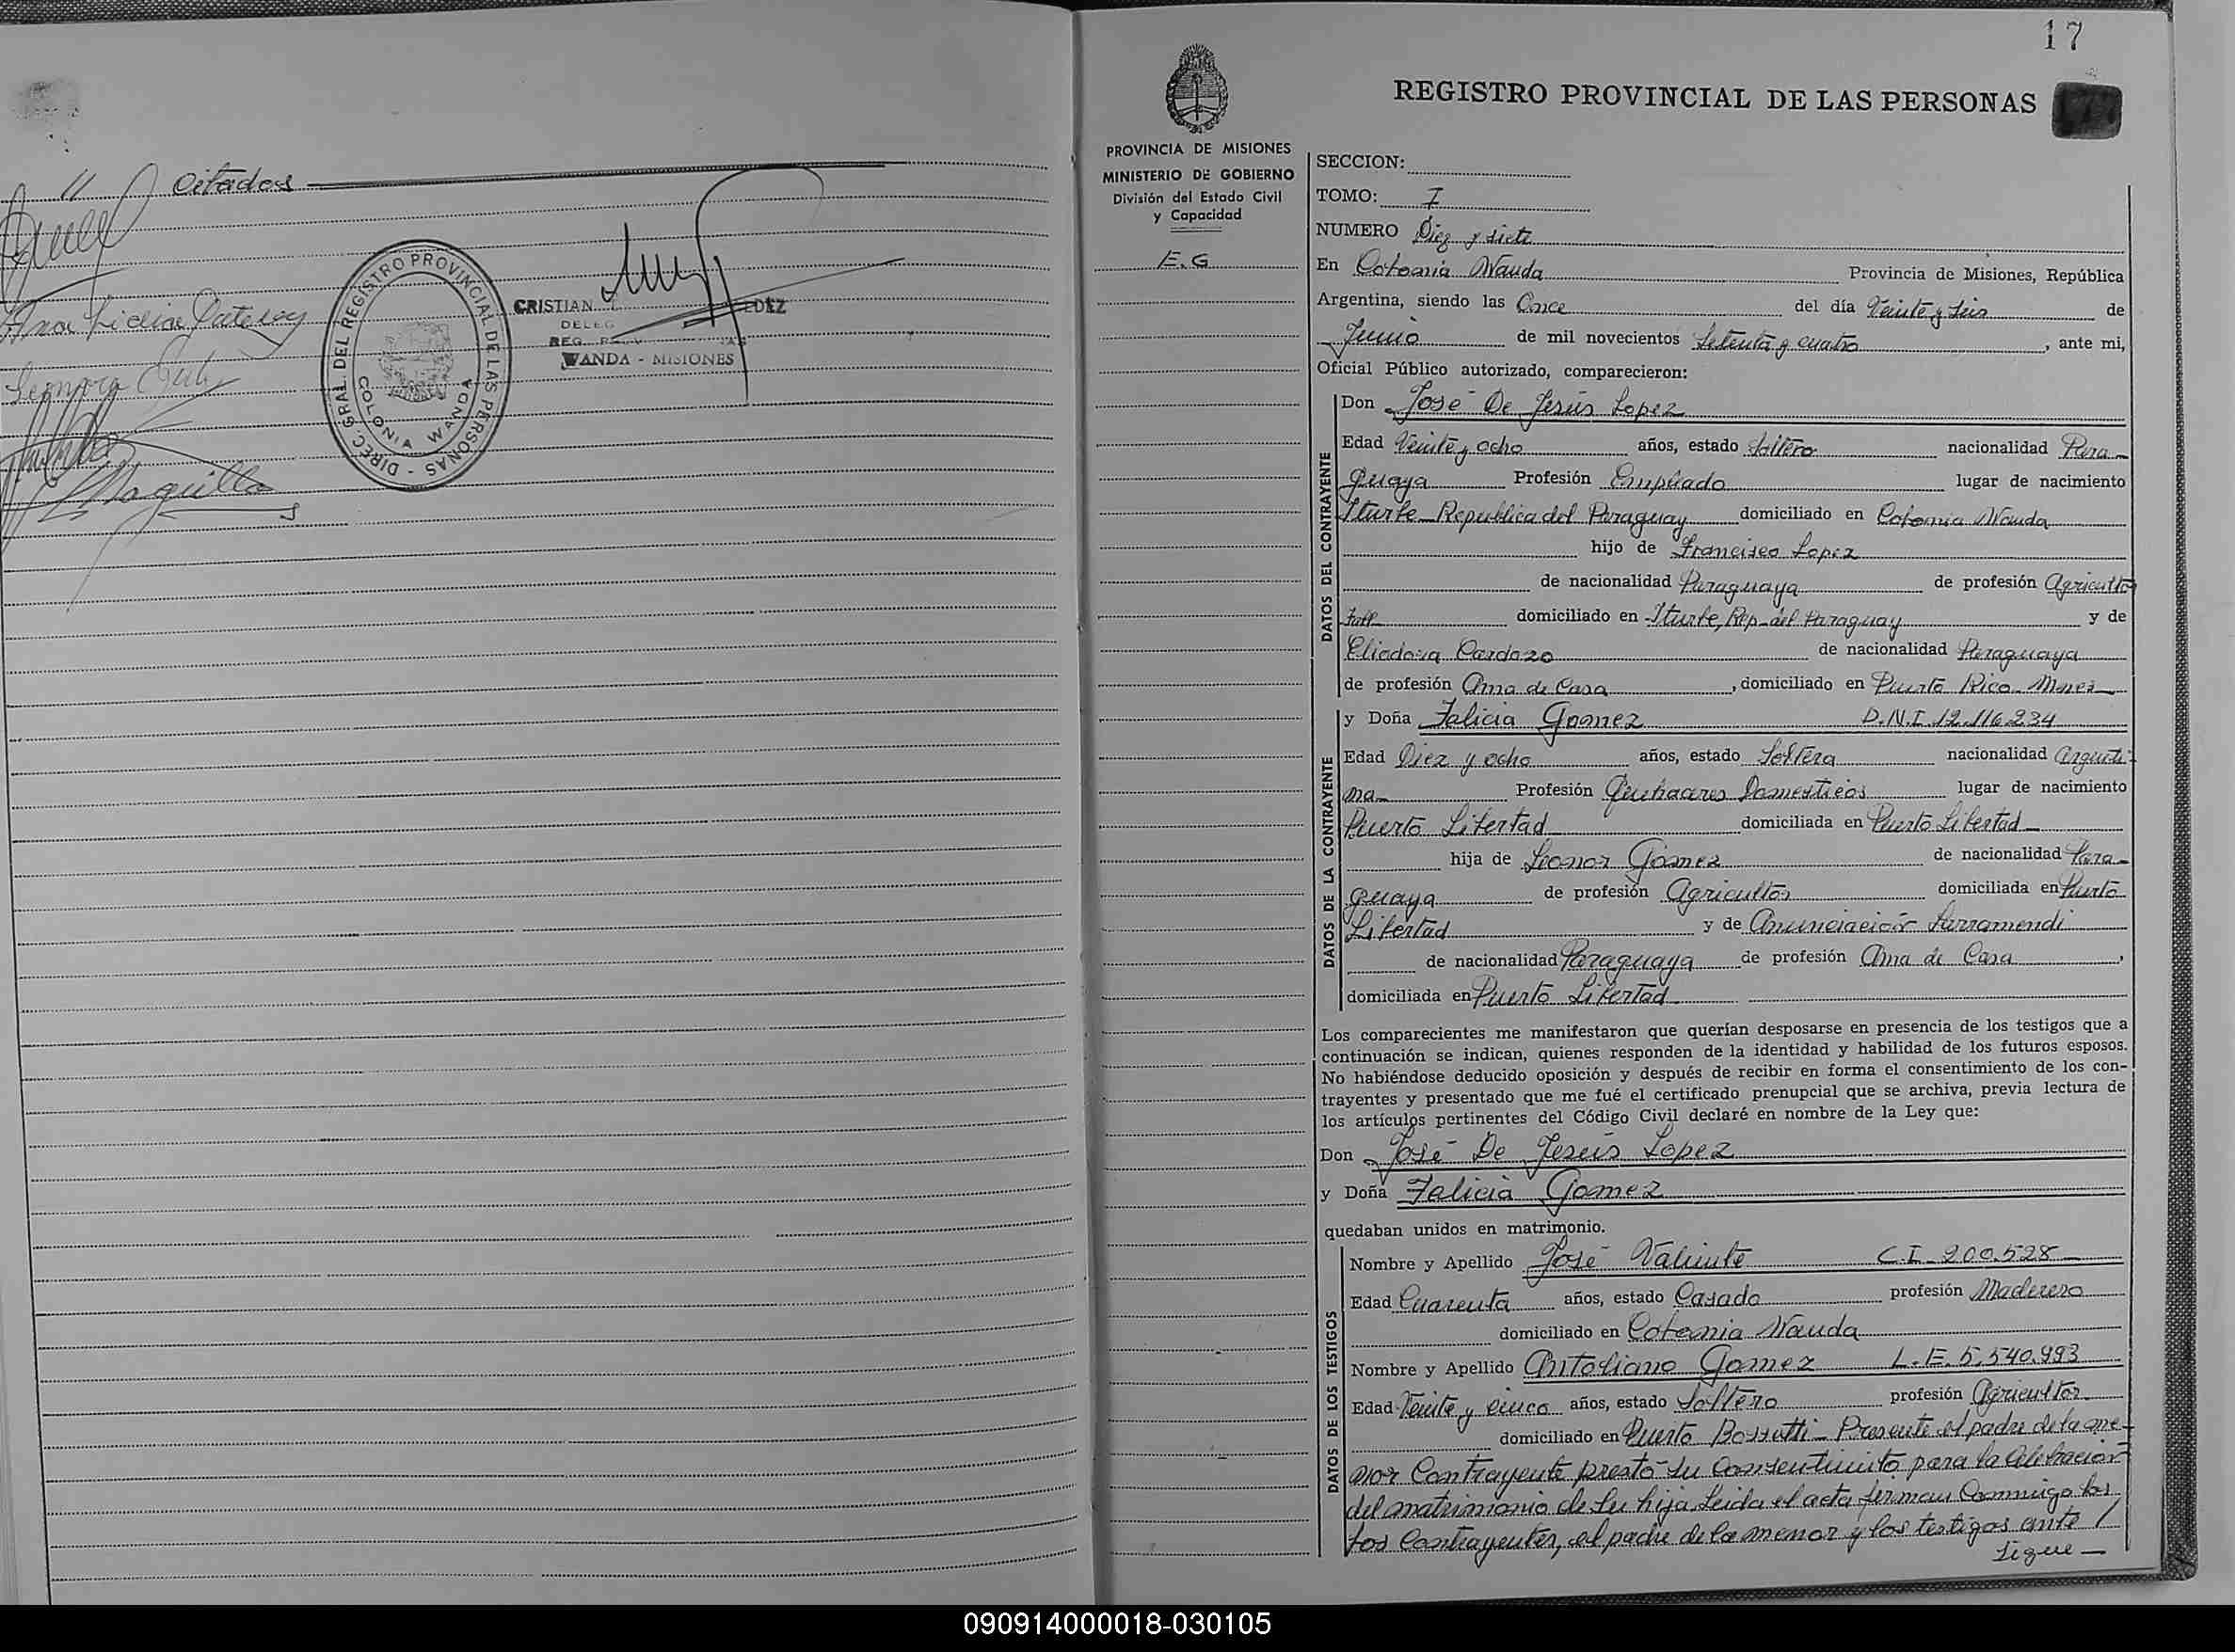 // Citados
Ana Lidia
Leonora
Maquilla
DIREC. GRAL. DEL REGISTRO PROVINCIAL DE LAS PERSONAS -
COLONIA WANDA
CRISTIAN
DELEG
REG.
WANDA - MISIONES
17
REGISTRO PROVINCIAL DE LAS PERSONAS
PROVINCIA DE MISIONES
MINISTERIO DE GOBIERNO
División del Estado Civil
y Capacidad
E.G
SECCION:
TOMO: I
NUMERO Diez y siete
En Colonia Wanda Provincia de Misiones, República
Argentina, siendo las Once del día Veinte y seis de
Junio de mil novecientos Setenta y cuatro, ante mi,
Oficial Público autorizado, comparecieron:
DATOS DEL CONTRAYENTE
Don José De Jesús Lopez
Edad Veinte y ocho años, estado Soltero nacionalidad Para-
guaya Profesión Empleado lugar de nacimiento
Iturbe Republica del Paraguay domiciliado en Colonia Wanda
hijo de Francisco Lopez
de nacionalidad Paraguaya de profesión Agricultor
domiciliado en Iturbe, Rep. del Paraguay y de
Eliodora Cardozo de nacionalidad Paraguaya
de profesión Ama de Casa, domiciliado en Puerto Rico
DATOS DE LA CONTRAYENTE
y Doña Falicia Gomez D.N.I. 12.116.234
Edad Diez y ocho años, estado Soltera nacionalidad Argenti-
na- Profesión Quehaceres Domesticos lugar de nacimiento
Puerto Libertad domiciliada en Puerto Libertad
hija de Leonor Gomez de nacionalidad Para-
guaya de profesión Agricultor domiciliada en Puerto
Libertad y de Anunciación Larramendi
de nacionalidad Paraguaya de profesión Ama de Casa,
domiciliada en Puerto Libertad
Los comparecientes me manifestaron que querían desposarse en presencia de los testigos que a
continuación se indican, quienes responden de la identidad y habilidad de los futuros esposos.
No habiéndose deducido oposición y después de recibir en forma el consentimiento de los con-
trayentes y presentado que me fué el certificado prenupcial que se archiva, previa lectura de
los artículos pertinentes del Código Civil declaré en nombre de la Ley que:
Don José De Jesús Lopez
y Doña Falicia Gomez
quedaban unidos en matrimonio.
DATOS DE LOS TESTIGOS
Nombre y Apellido José Valiente C.I. 200.528
Edad Cuarenta años, estado Casado profesión Maderero
domiciliado en Colonia Wanda
Nombre y Apellido Antoliano Gomez L.E. 5.540.993
Edad Veinte y cinco años, estado Soltero profesión Agricultor
domiciliado en Puerto Bossetti - Presente el padre de la me-
nor Contrayente prestó su Consentimiento para la Celebración
del matrimonio de su hija Leida el acta firman Conmigo los
los Contrayentes, el padre de la menor y los testigos ante /
sigue -
090914000018-030105